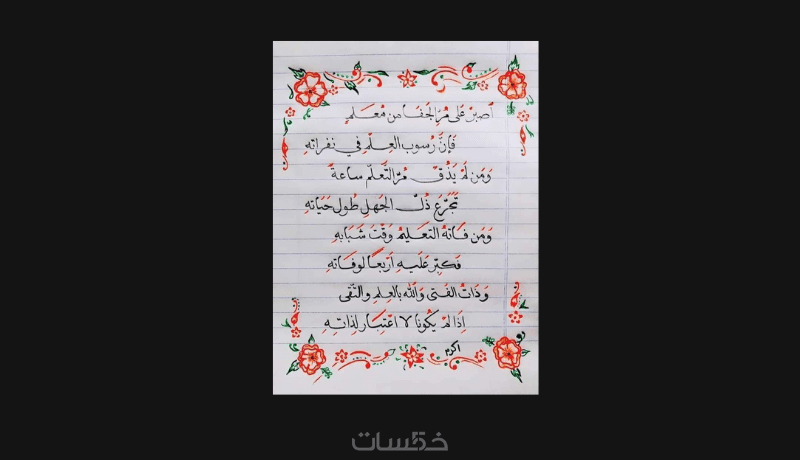 اصبر على مُرّ الجَفَا من مُعَلم
فَإِنَّ رُسوب العِلمِ في نفراتهِ
وَمَن لَمْ يَذُقْ مُرّ التَّعَلّم ساعةً
تَجَرَّعَ ذُلَّ الجَهلِ طُول حَيَاتهِ
وَمَن فَاتهُ التعَليمُ وَقْتَ شَبَابهِ
فَكبّر عَلَيهِ اَربَعاً لوفَاتهِ
وَذَاتُ الفَتى وَاللّه بالعِلمِ والتّقى
إذَا لمْ يَكُونَا لا اعْتِبَار لِذاتهِ
اكرم
خمسات